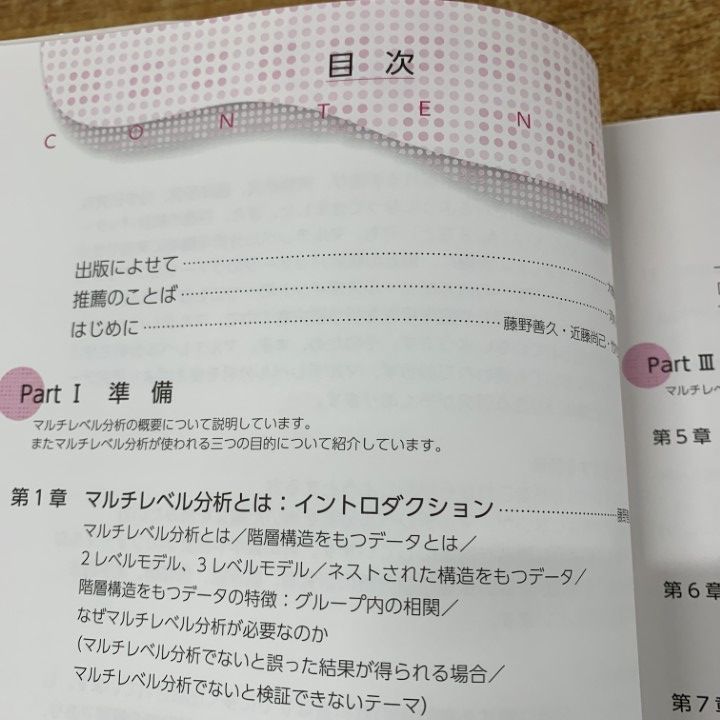 目次
CONTENT
出版によせて
推薦のことば
はじめに 藤野善久・近藤尚己・
Part Ⅰ 準備
マルチレベル分析の概要について説明しています。
またマルチレベル分析が使われる三つの目的について紹介しています。
第1章 マルチレベル分析とは：イントロダクション
マルチレベル分析とは／階層構造をもつデータとは／
２レベルモデル、３レベルモデル／ネストされた構造をもつデータ／
階層構造をもつデータの特徴：グループ内の相関／
なぜマルチレベル分析が必要なのか
（マルチレベル分析でないと誤った結果が得られる場合／
マルチレベル分析でないと検証できないテーマ）
Part Ⅲ
マルチレベ
第5章
第6章
第7章